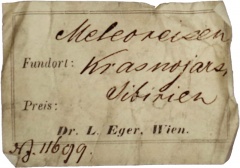 Meteoreisen
Fundort: Krasnojarsk
Sibirien
Preis:
Dr. L. Eger, Wien.